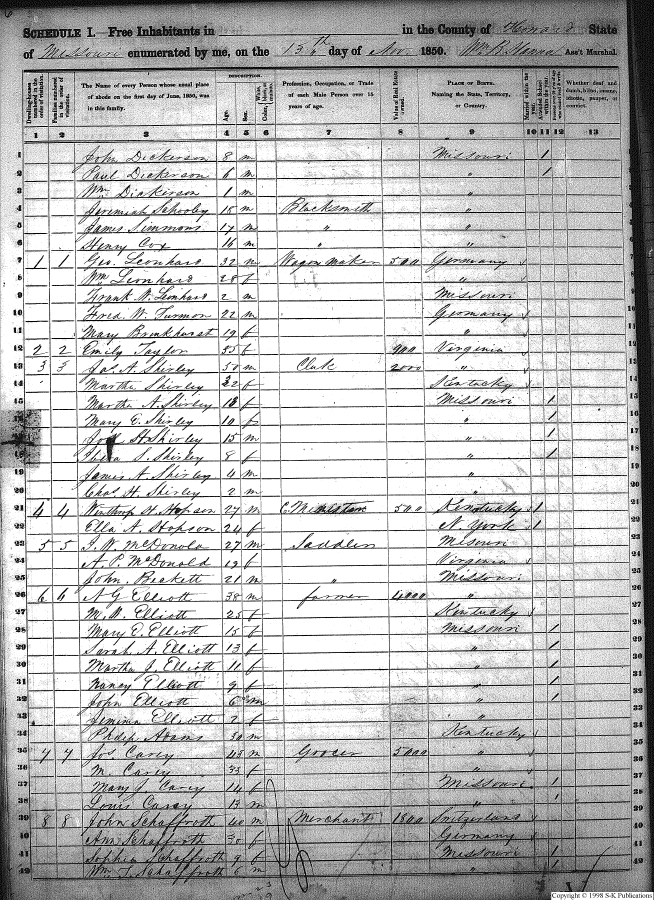 6
SCHEDULE I.—Free Inhabitants in in the County of Howard State
of Missouri enumerated by me, on the 13th day of Nov 1850. Ass't Marshal.
DESCRIPTION.
Dwelling-houses numbered in the order of visitation.
Families numbered in the order of visitation.
The Name of every Person whose usual place of abode on the first day of June, 1850, was in this family.
Age.
Sex.
Profession, Occupation, or Trade of each Male Person over 15 years of age.
Value of Real Estate owned.
PLACE OF BIRTH. Naming the State, Territory, or Country.
Married within the year.
Whether deaf and dumb, blind, insane, idiotic, pauper, or convict.
1 2 3 4 5 6 7 8 9 10 11 12 13
1 John Dickerson 8 m Missouri 1
2 Paul Dickerson 6 m " 1
3 Wm Dickerson 1 m "
4 Jeremiah Schooby 18 m Blacksmith "
5 James Simmons 17 m " "
6 Henry Cox 16 m " "
7 1 1 Geo. Leonhard 32 m Wagon maker 500 Germany
8 Wm Leonhard 28 f "
9 Frank W. Leonhard 2 m Missouri
10 Fred W. Turmon 22 m Germany
11 Mary Bronkhurst 19 f "
12 2 2 Emily Taylor 35 f 900 Virginia
13 3 3 Jas A. Shirley 50 m Clerk 2000 "
14 Martha Shirley 32 f Kentucky
15 Martha A. Shirley f Missouri 1
16 Mary E. Shirley 10 f " 1
17 H Shirley 15 m " 1
18 S. Shirley 8 f " 1
19 James A Shirley 4 m "
20 Chas H. Shirley 2 m "
21 4 4 Winthrop H. Hopson 27 m C. Minister 500 Kentucky 1
22 Ella A. Hopson 24 f N York 1
23 5 5 J. W. McDonold 27 m Saddler Missouri
24 A. P. McDonald 19 f Virginia
25 John Beckett 21 m " Missouri
26 6 6 A G Elliott 38 m farmer 4000 "
27 M. W. Elliott 25 f Kentucky
28 Mary E. Elliott 15 f Missouri 1
29 Sarah A. Elliott 13 f " 1
30 Martha J. Elliott 11 f " 1
31 Nancy Elliott 9 f " 1
32 John Elliott 6 m " 1
33 Jemima Elliott 2 f "
34 Philip Adams 30 m Kentucky
35 7 7 Jos. Carey 45 m Grocer 5000 "
36 M. Carey 33 f "
37 Mary J. Carey 14 f Missouri 1
38 Louis Carey 13 m " 1
39 8 8 John Schaffroth 40 m Merchant 1800 Switzerland
40 Ann Schaffroth 30 f Germany
41 Sophia Schaffroth 9 f Missouri 1
42 Wm T. Schaffroth 6 m " 1
Copyright © 1998 S-K Publications